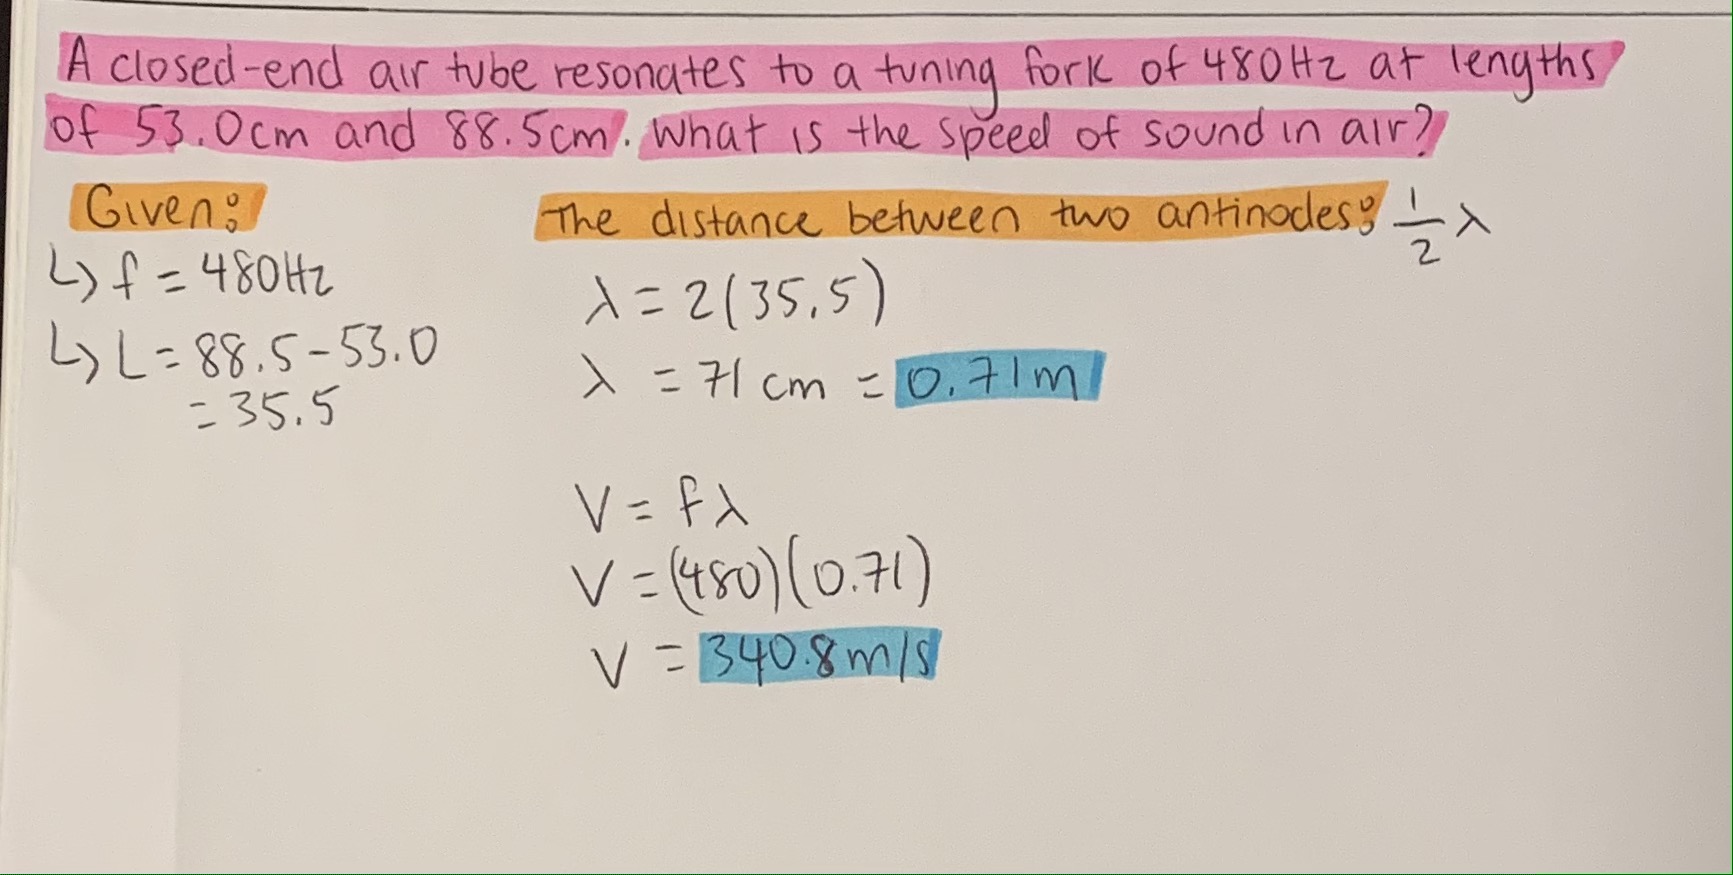 A closed-end air tube resonates to a tuning fork of 480Hz at lengths
of 53.0cm and 88.5cm. What is the speed of sound in air?
Given:
↳ f = 480Hz
↳ L = 88.5 - 53.0
= 35.5
The distance between two antinodes: 1/2 λ
λ = 2(35.5)
λ = 71 cm = 0.71m
V = fλ
V = (480)(0.71)
V = 340.8m/s